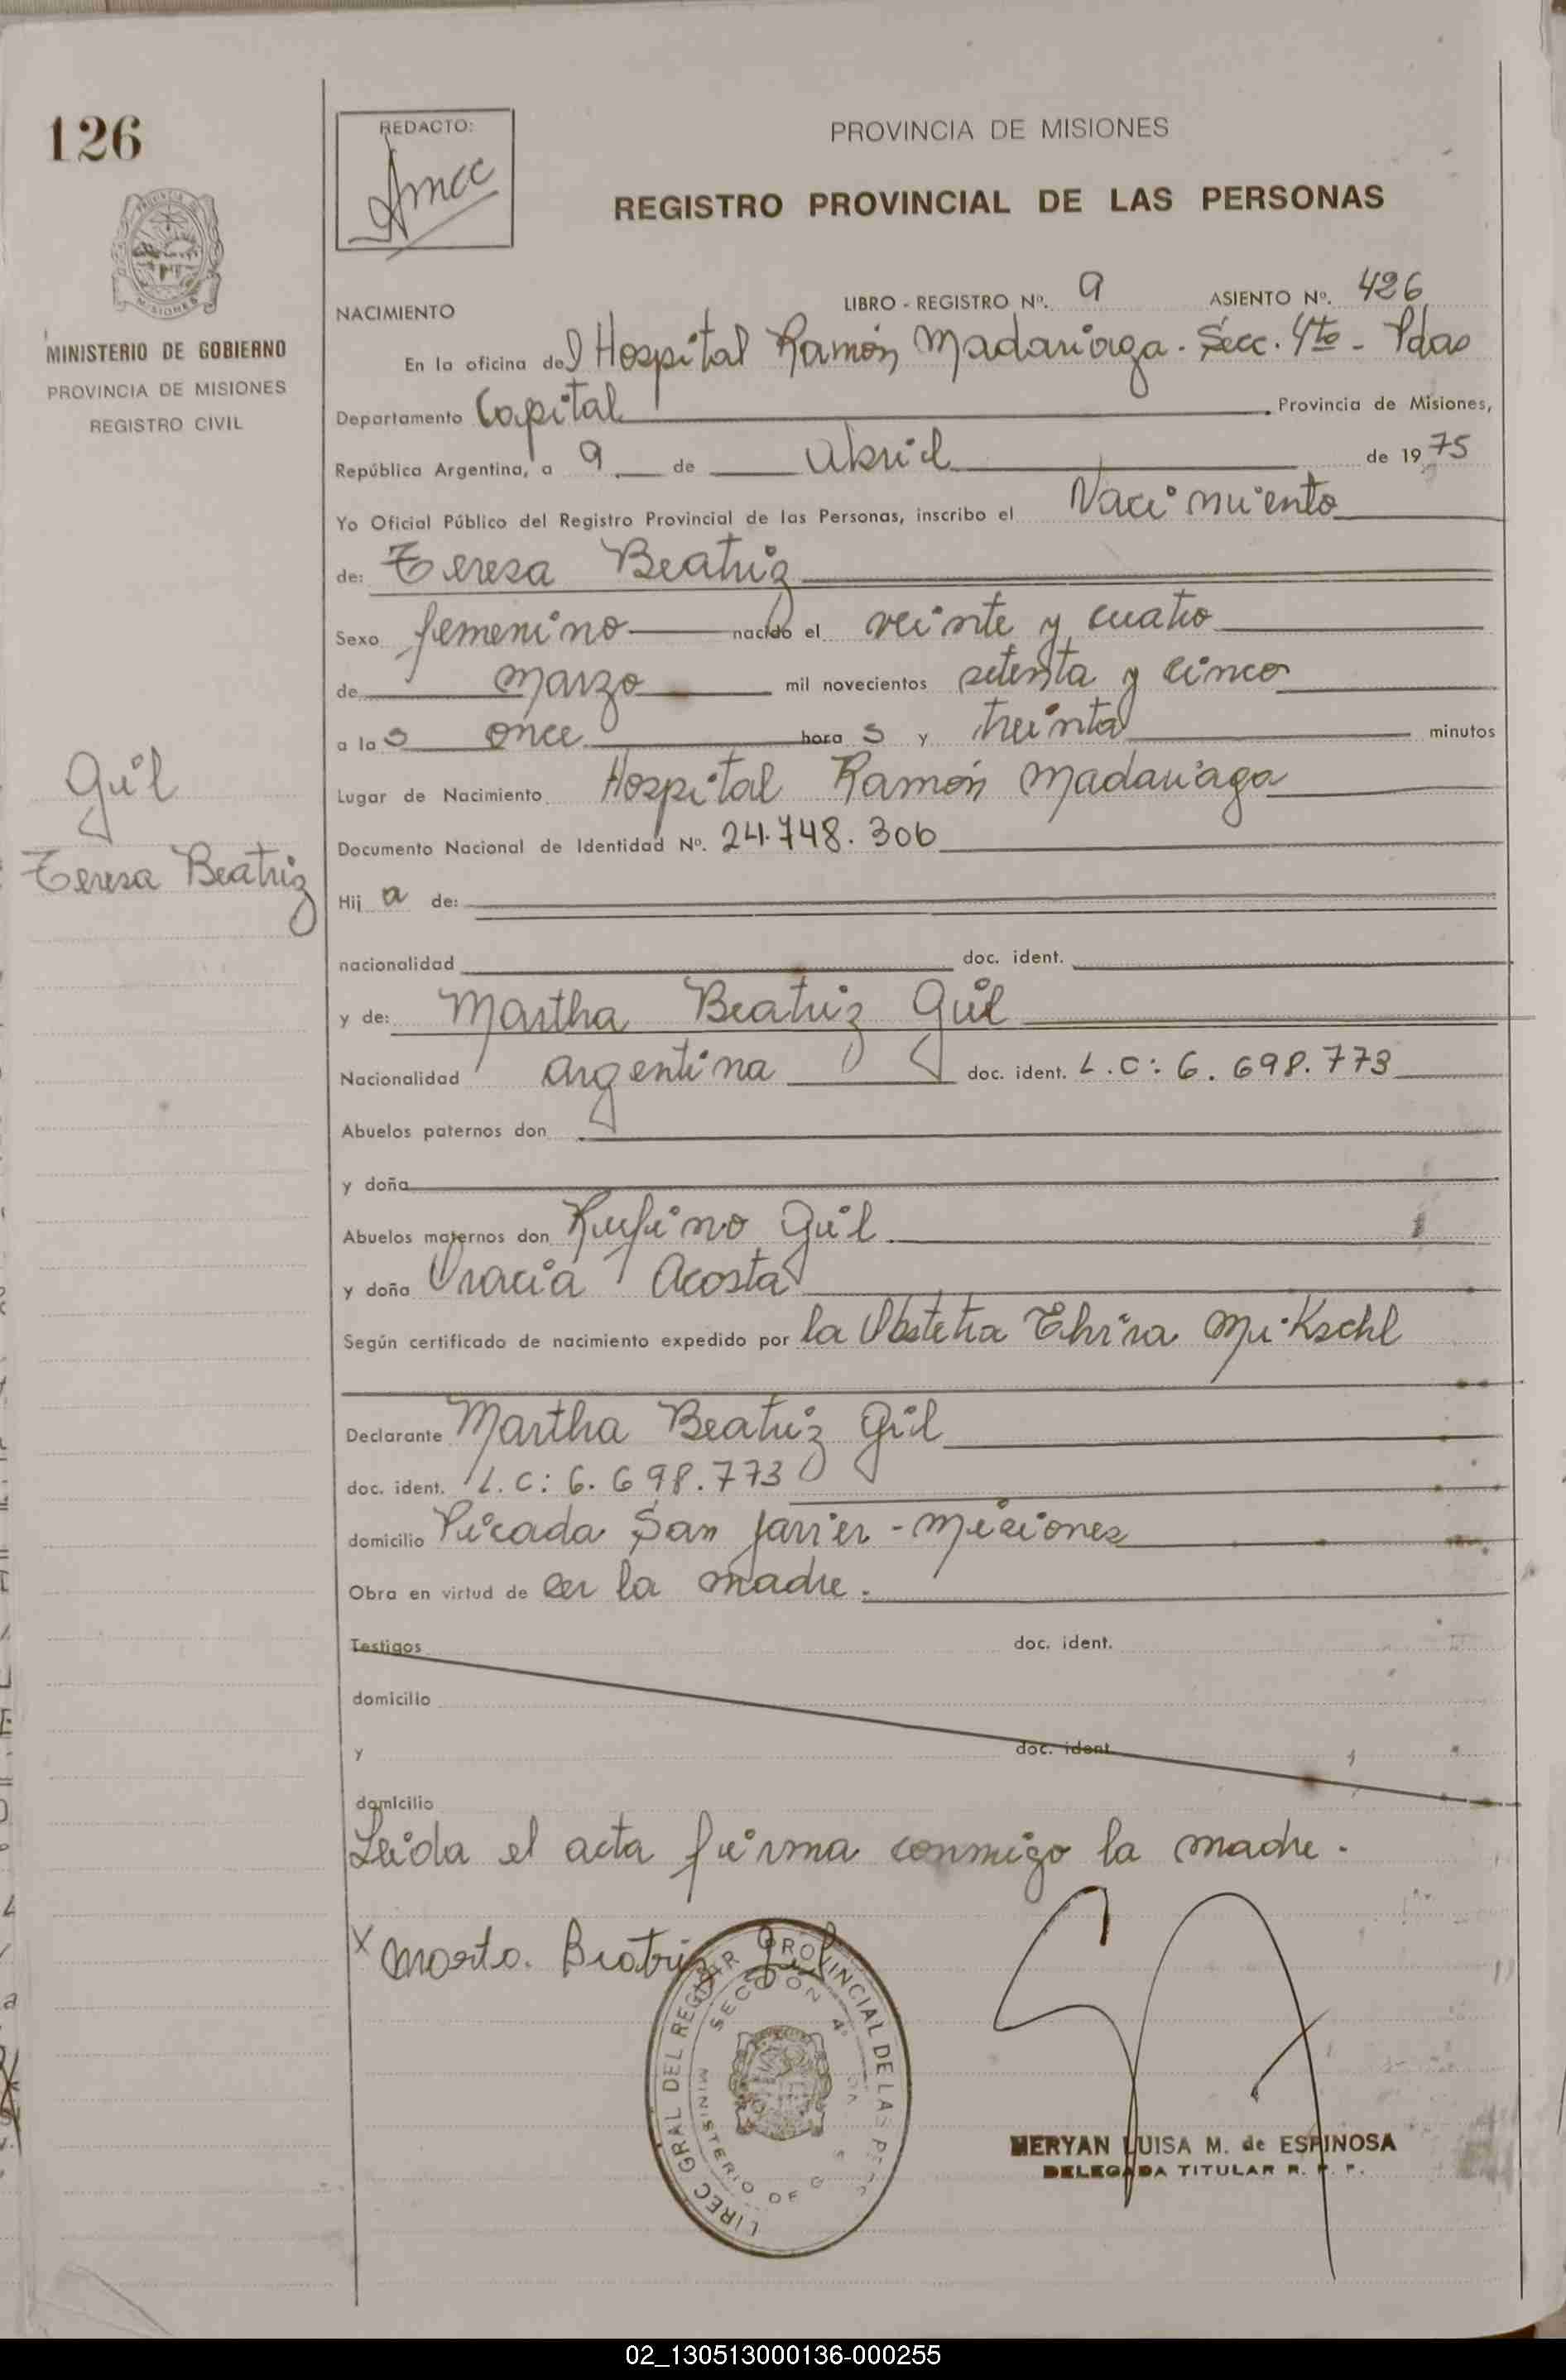 126
REDACTO:
PROVINCIA DE MISIONES
REGISTRO PROVINCIAL DE LAS PERSONAS
MISIONES
MINISTERIO DE GOBIERNO
PROVINCIA DE MISIONES
REGISTRO CIVIL
NACIMIENTO LIBRO - REGISTRO Nº. 9 ASIENTO Nº. 426
En la oficina del Hospital Ramón Madariaga. Secc. 4ta - Pdas
Departamento Capital Provincia de Misiones,
República Argentina, a 9 de abril de 1975
Yo Oficial Público del Registro Provincial de las Personas, inscribo el Nacimiento
de: Teresa Beatriz
Sexo femenino nacido el veinte y cuatro
de marzo mil novecientos setenta y cinco
a las once horas y treinta minutos
Gil
Teresa Beatriz
Lugar de Nacimiento Hospital Ramón Madariaga
Documento Nacional de Identidad Nº. 24.748.306
Hija de:
nacionalidad doc. ident.
y de: Martha Beatriz Gil
Nacionalidad argentina doc. ident. L.C: 6.698.773
Abuelos paternos don
y doña
Abuelos maternos don Rufino Gil
y doña Acosta
Según certificado de nacimiento expedido por la Obstetra Elvira Mikschl
Declarante Martha Beatriz Gil
doc. ident. L.C: 6.698.773
domicilio Picada San Javier - Misiones
Obra en virtud de ser la madre.
Testigos doc. ident.
domicilio
y doc. ident.
domicilio
Leida el acta firma conmigo la madre.
x Marta. Beatriz Gil
DIREC GRAL DEL REGISTR PROVINCIAL DE LAS PERS
SECCION 4ª
MINISTERIO DE G
MERYAN LUISA M. de ESPINOSA
DELEGADA TITULAR R. P. P.
02_130513000136-000255